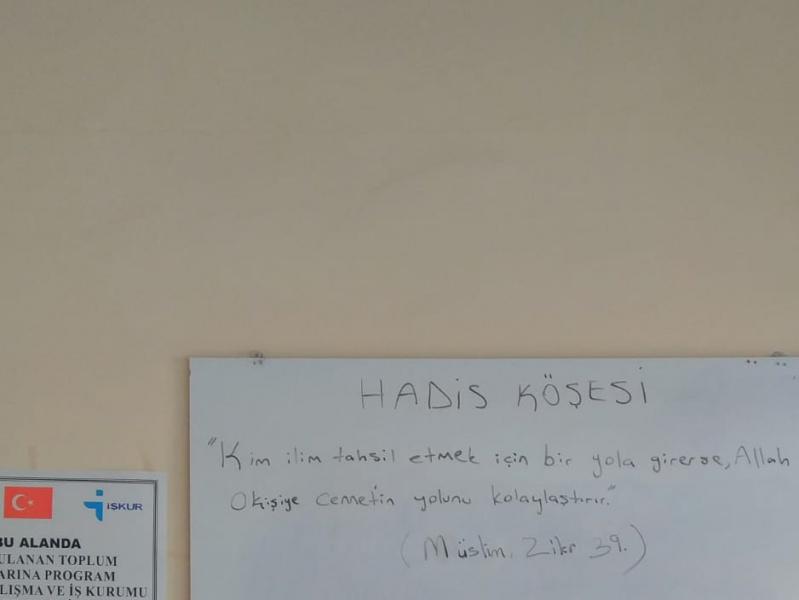 HADİS KÖŞESİ
"Kim ilim tahsil etmek için bir yola girerse, Allah
O kişiye Cennet'in yolunu kolaylaştırır."
(Müslim, Zikr 39.)
İŞKUR
BU ALANDA
ULANAN TOPLUM
ARINA PROGRAM
LIŞMA VE İŞ KURUMU